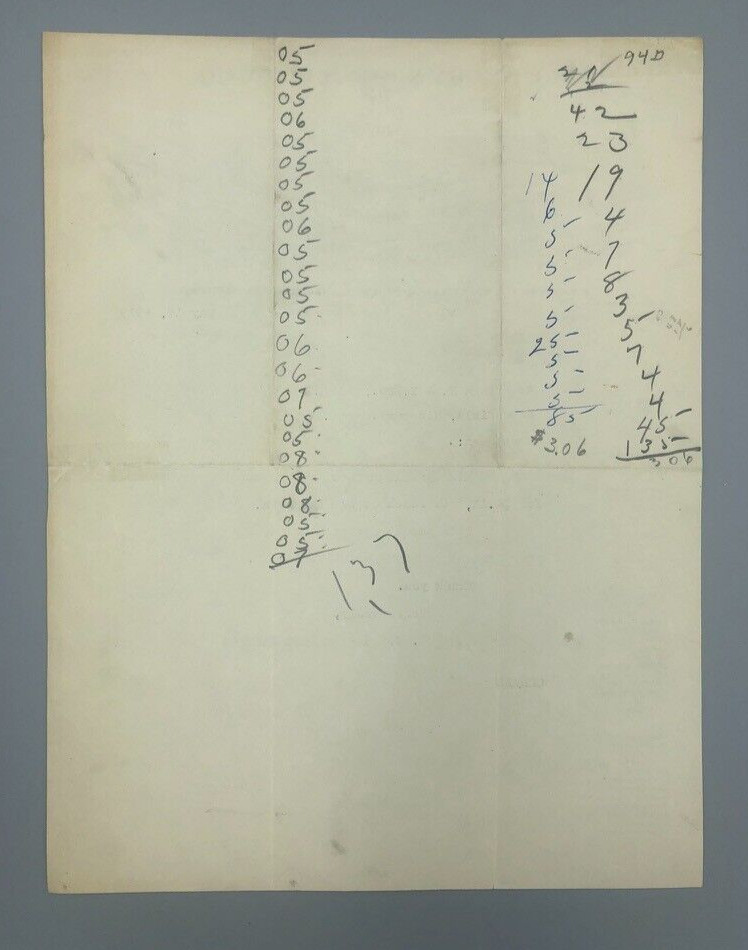 05
05
05
06
05
05
05
05
06
05
05
05
05
06
06
07
05
05
08
08
08
05
05
07
137
94D
42
23
19
4
7
8
3
5
7
4
4
45
135
306
14
6
5
5
5
5
25
5
5
5
85
$3.06